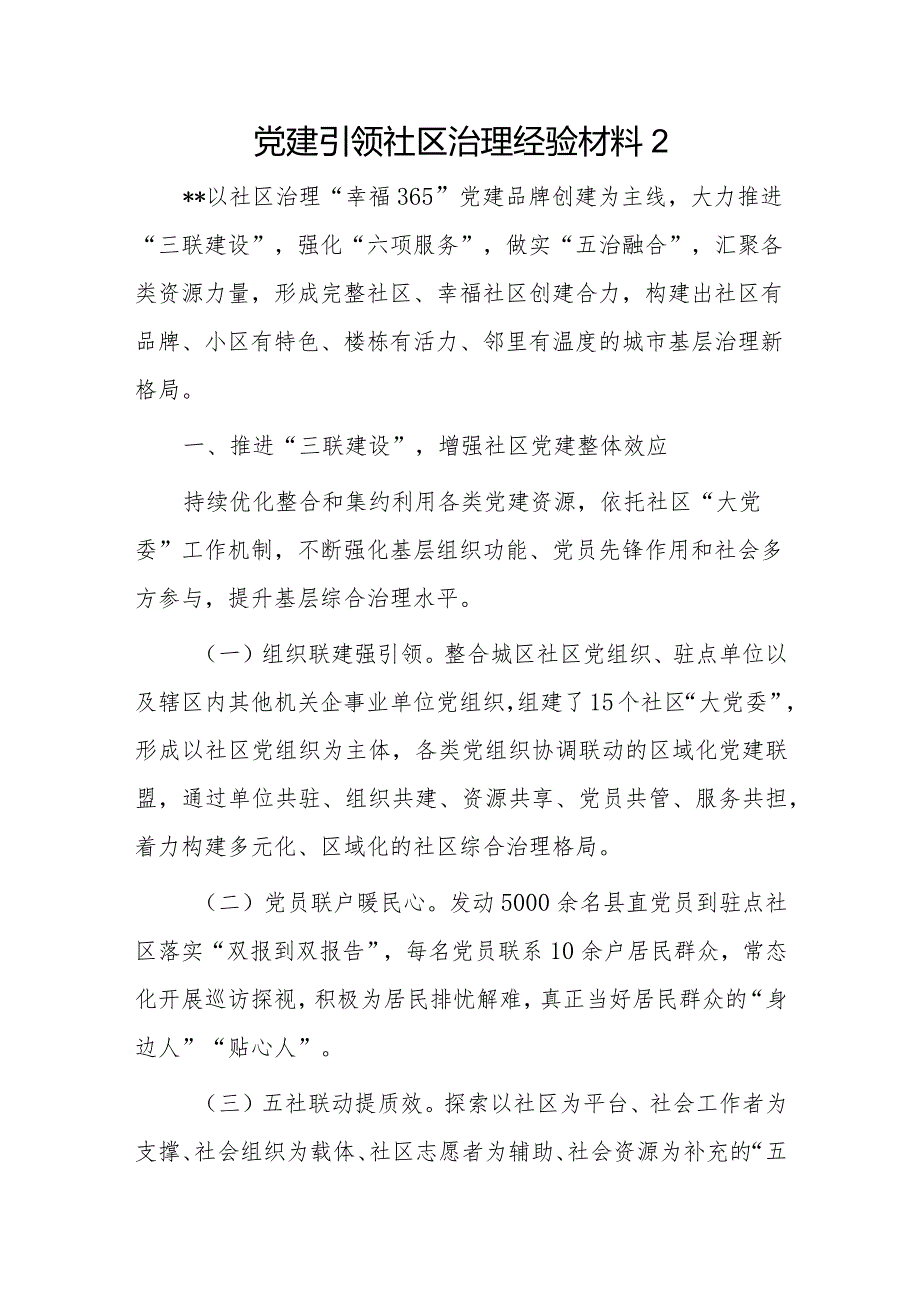 党建引领社区治理经验材料2
**以社区治理“幸福365”党建品牌创建为主线，大力推进
“三联建设”，强化“六项服务”，做实“五治融合”，汇聚各
类资源力量，形成完整社区、幸福社区创建合力，构建出社区有
品牌、小区有特色、楼栋有活力、邻里有温度的城市基层治理新
格局。
一、推进“三联建设”，增强社区党建整体效应
持续优化整合和集约利用各类党建资源，依托社区“大党
委”工作机制，不断强化基层组织功能、党员先锋作用和社会多
方参与，提升基层综合治理水平。
（一）组织联建强引领。整合城区社区党组织、驻点单位以
及辖区内其他机关企事业单位党组织，组建了15个社区“大党委”，
形成以社区党组织为主体，各类党组织协调联动的区域化党建联
盟，通过单位共驻、组织共建、资源共享、党员共管、服务共担，
着力构建多元化、区域化的社区综合治理格局。
（二）党员联户暖民心。发动5000余名县直党员到驻点社
区落实“双报到双报告”，每名党员联系10余户居民群众，常态
化开展巡访探视，积极为居民排忧解难，真正当好居民群众的“身
边人”“贴心人”。
（三）五社联动提质效。探索以社区为平台、社会工作者为
支撑、社会组织为载体、社区志愿者为辅助、社会资源为补充的“五